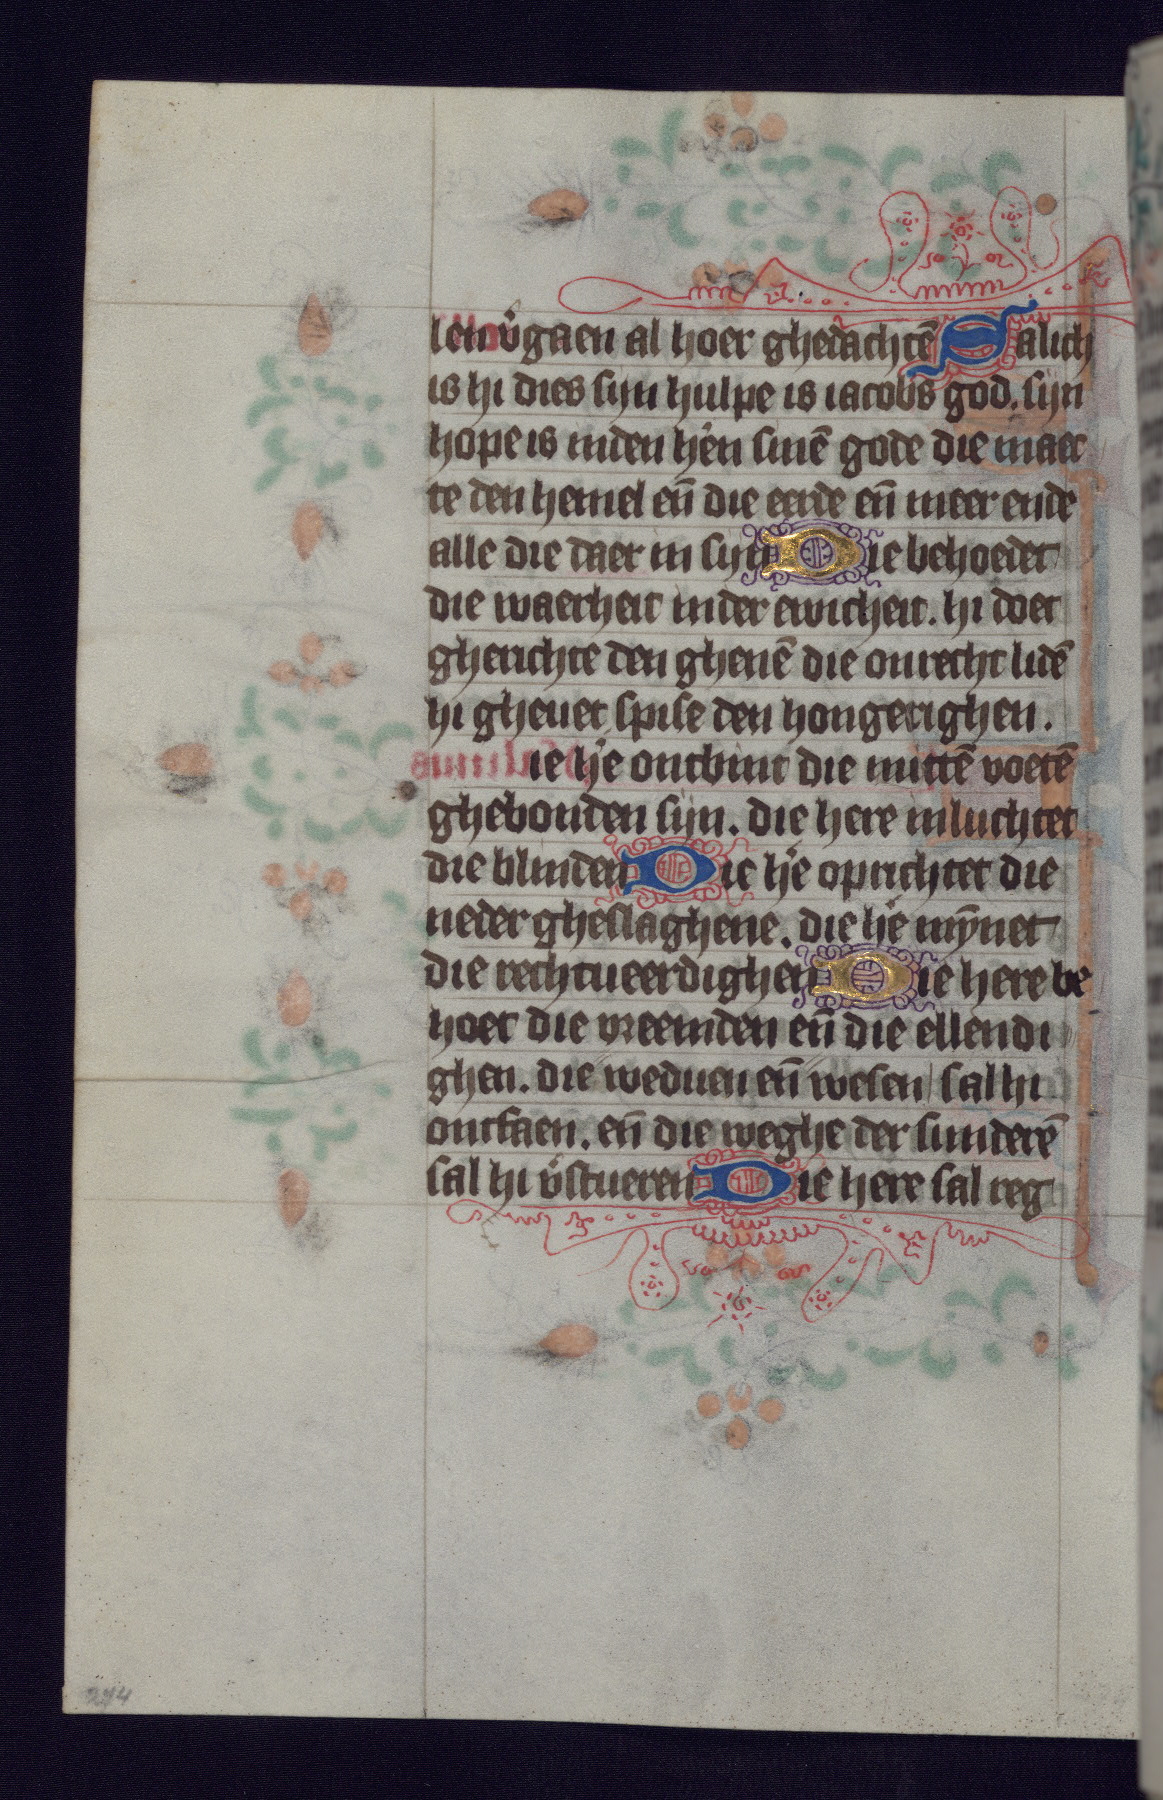 len v̓gaen al hoer ghedachtē Salich
is hi dies sijn hulpe is iacobs god. sijn
hope is inden hēn sinē gode die maec
te den hemel en̄ die eerde en̄ meer ende
alle die daer in sijn Die behoedet
die waerheit inder ewicheit. hi doet
gherichte den ghenē die onrecht lidē
hi gheuet spise den hongerighen.
ie h̓e ontbint die mittē voetē
ghebonden sijn. die here inluchtet
die blinden Die h̓e oprichtet die
neder gheslaghene. die h̓e mȳnet
die rechtueerdighen Die here be
hoet die vreemden en̄ die ellendi
ghen. die weduen en̄ wesen sal hi
ontfaen. en̄ die weghe der sunderē
sal hi v̓stueren Die here sal reg
244